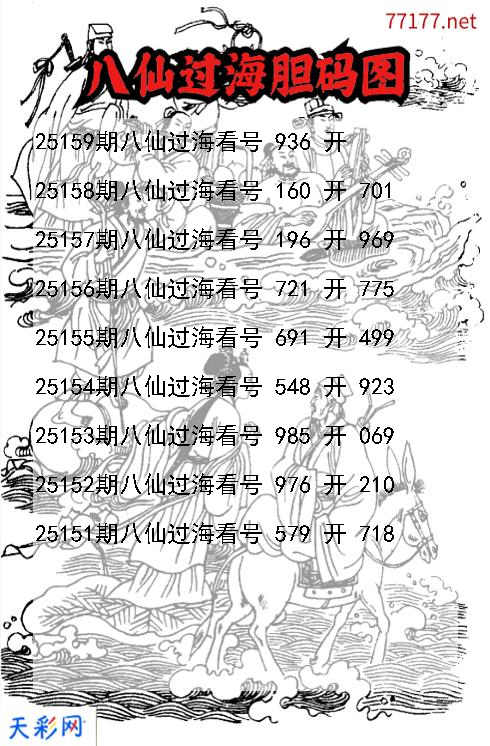 77177.net
八仙过海胆码图
25159期八仙过海看号 936 开
25158期八仙过海看号 160 开 701
25157期八仙过海看号 196 开 969
25156期八仙过海看号 721 开 775
25155期八仙过海看号 691 开 499
25154期八仙过海看号 548 开 923
25153期八仙过海看号 985 开 069
25152期八仙过海看号 976 开 210
25151期八仙过海看号 579 开 718
天彩网